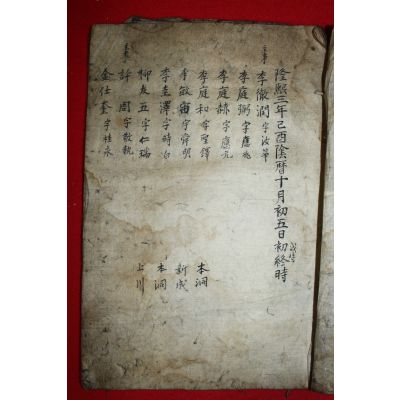 隆熙三年己酉陰曆十月初五日初終時
李徹潤字
李庭弼字應
李庭赫字應元
李庭和字聖鐸
李敏 字舜明
李圭澤字時白
柳友五字仁瑞
許 字敬執
金仕奎字 永
本洞
新成
本洞
上川